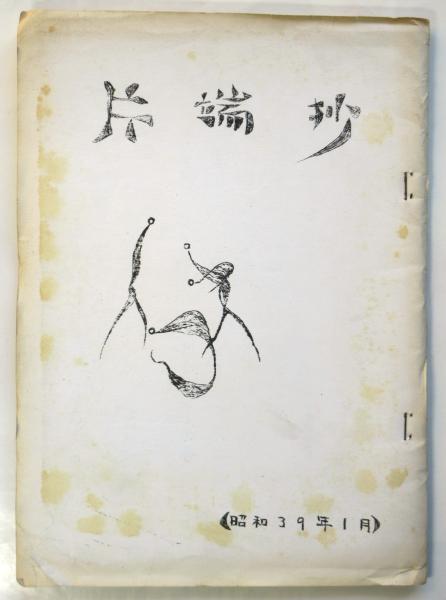 片端抄
(昭和39年1月)